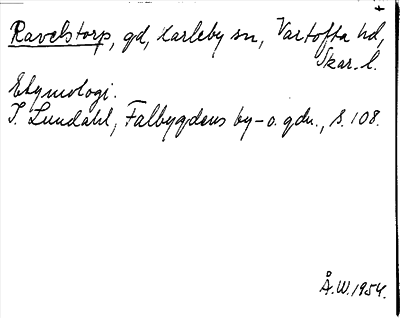 Ravelstorp, gd, Karleby sn, Vartofta hd,
Skar. l.
Etymologi.
I. Lundahl, Falbygdens by- o. gdn., s. 108.
Å.W. 1954.